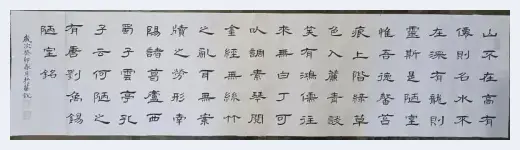 山不在高有
僊則名水不
在深有龍則
靈斯是陋室
惟吾德馨苔
痕上階綠草
色入簾青談
笑有鴻儒往
來無白丁可
以調素琴閱
金經無絲竹
之亂耳無案
牘之勞形南
陽諸葛廬西
蜀子雲亭孔
子云何陋之
有唐劉禹錫
陋室銘
歲次癸卯春月